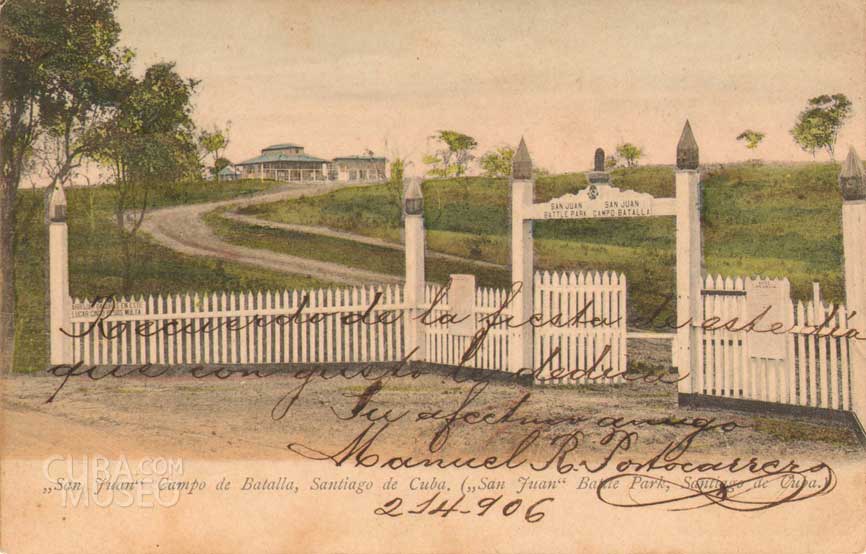 SAN JUAN SAN JUAN
BATTLE PARK CAMPO BATALLA
LUGAR CINCO PESOS MULTA
Recuerdo de la fiesta de este dia
que con gusto le dedica
Su afectmo amigo
Manuel R. Portocarrero
„San Juan“ Campo de Batalla, Santiago de Cuba. („San Juan“ Battle Park, Santiago de Cuba.)
214-906
CUBA.COM
MUSEO